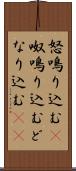 怒鳴り込む
呶鳴り込むど
なり込む